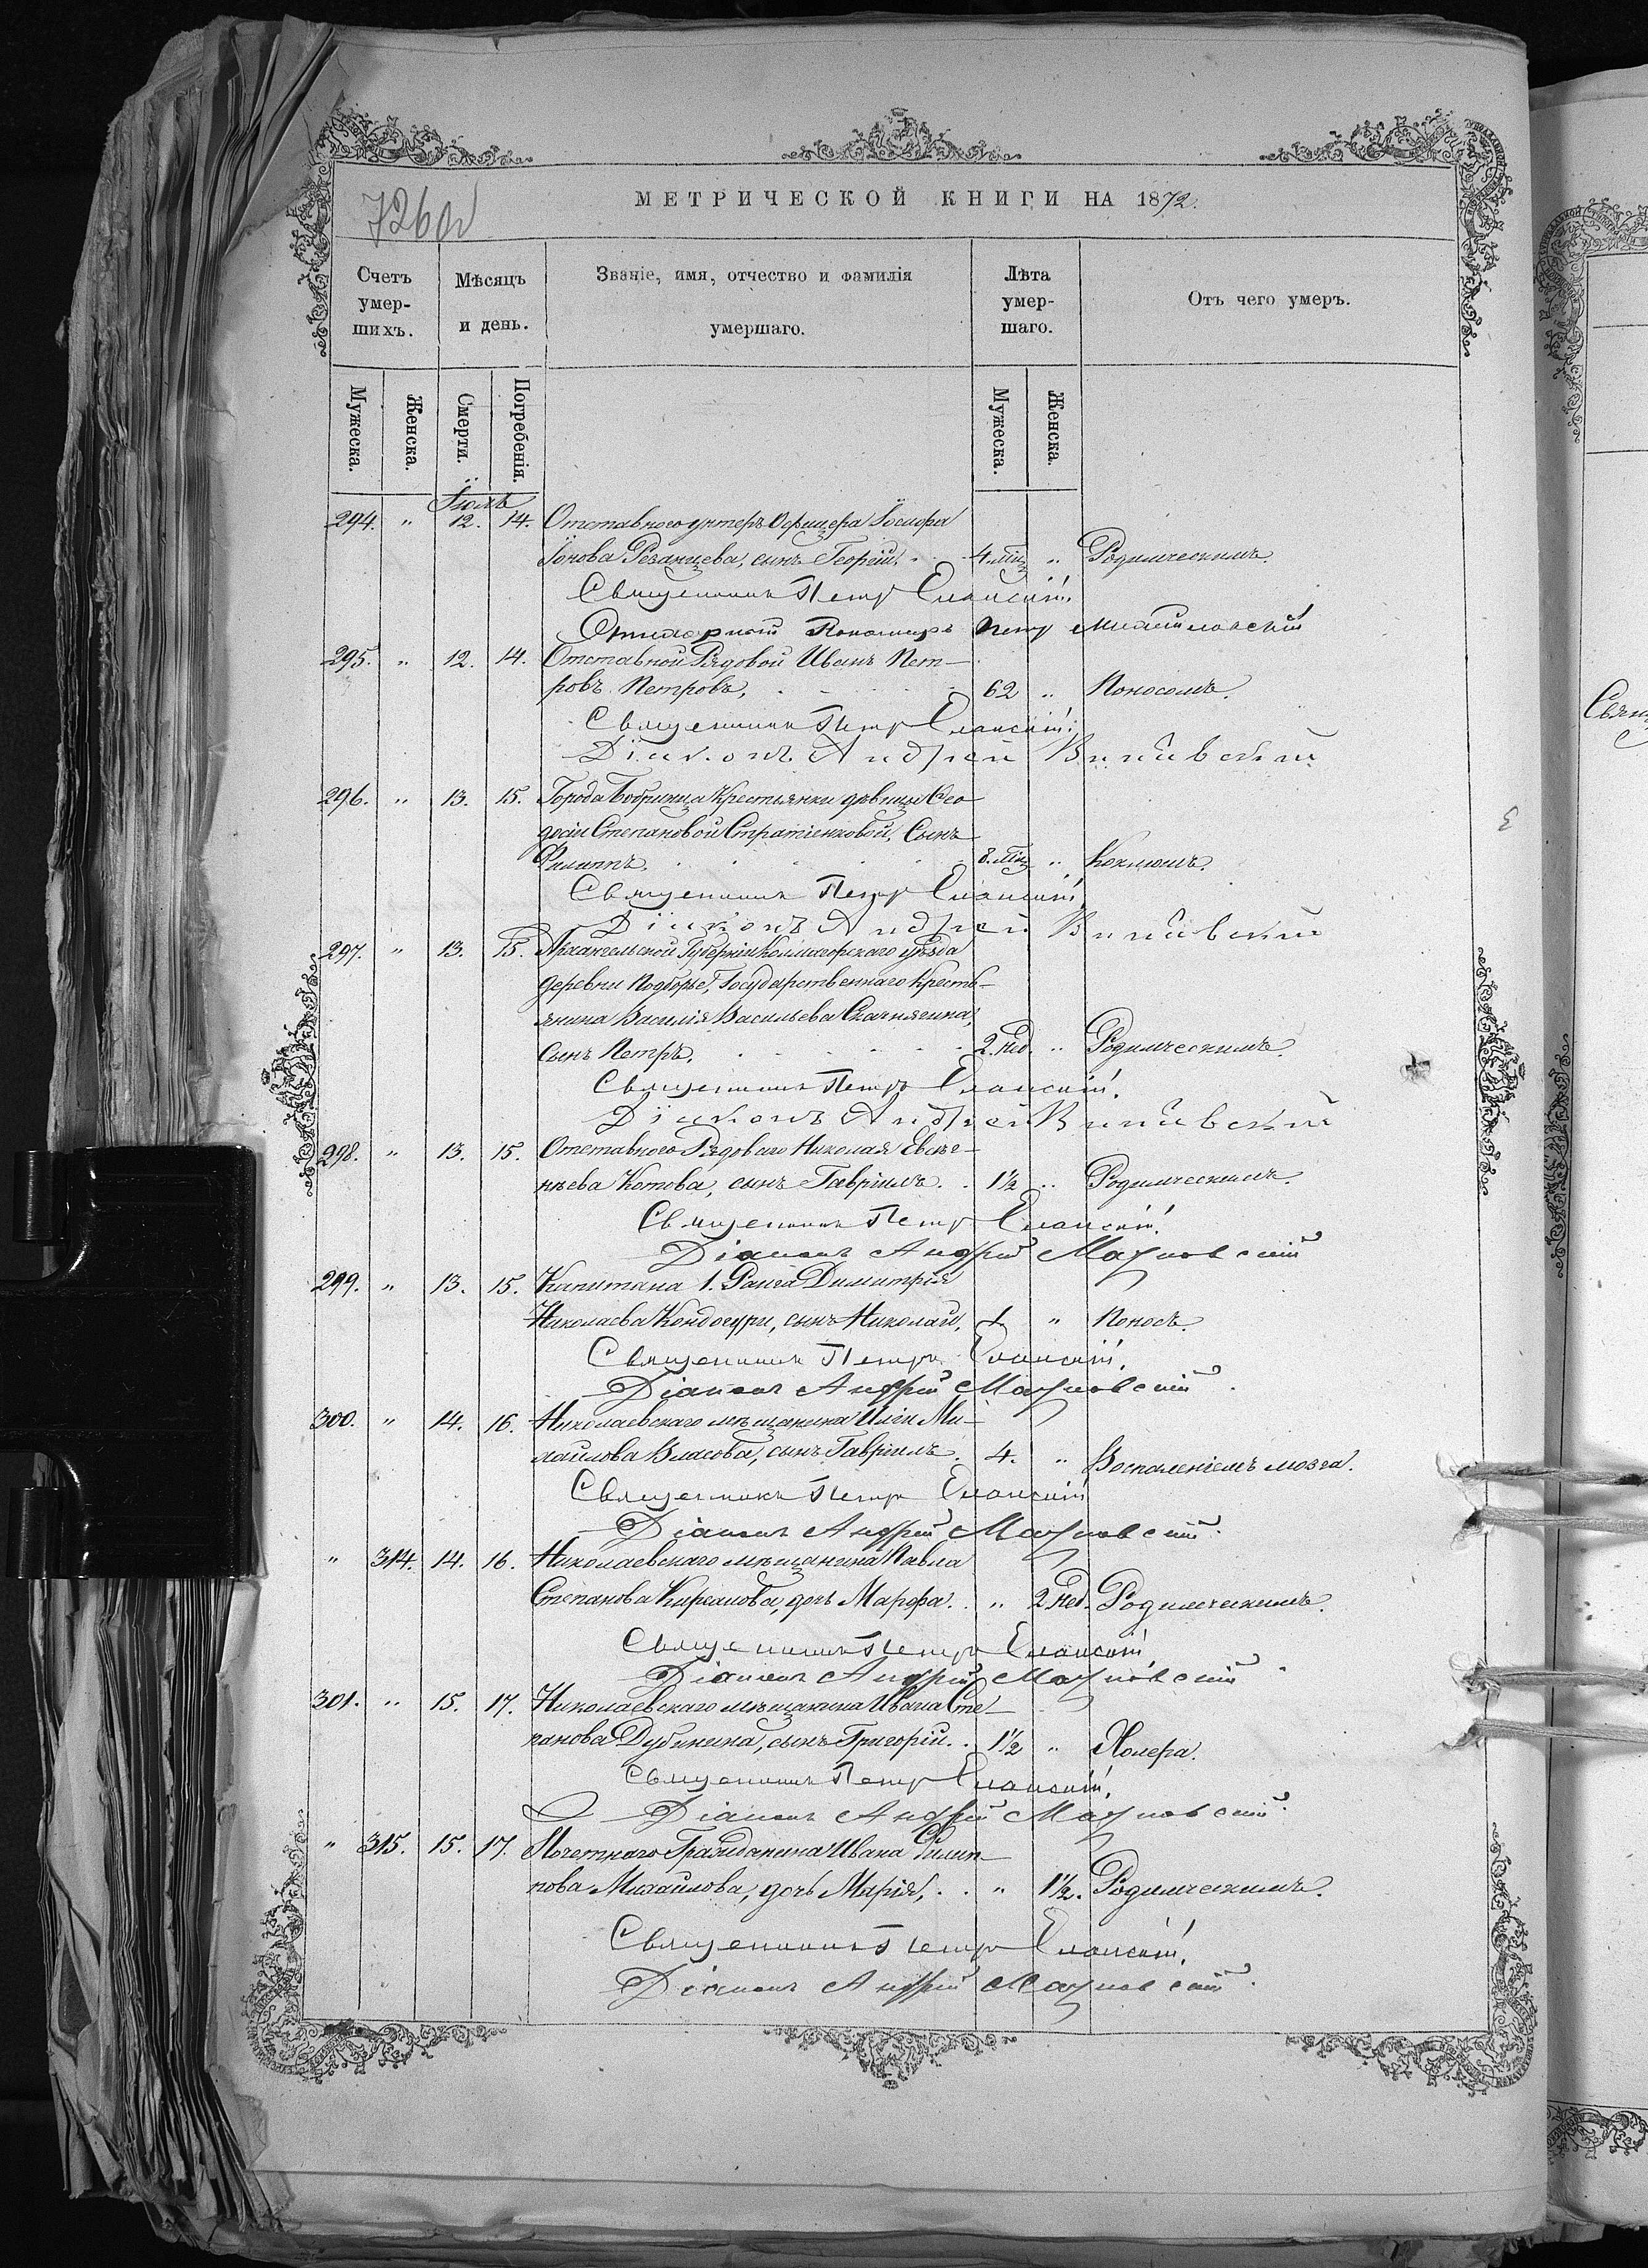 726об
МЕТРИЧЕСКОЙ КНИГИ НА 1872.
Счетъ умер- шихъ.
Мѣсяцъ и день.
Званіе, имя, отчество и фамилія умершаго.
Лѣта умер- шаго.
Отъ чего умеръ.
Мужеска. Женска. Смерти. Погребенія. Мужеска. Женска.
Іюль
294. " 12. 14. Отставного унтеръ Офицера Іосифа
Іонова Резанцева, сынъ Георгій. 4. мѣц " Родимческимъ.
Священникъ Петръ Еланскій.
Стихарный Пономарь Петр Михайловскій
295. " 12. 14. Отставной Рядовой Иванъ Пет-
ровъ Петровъ, 62 " Поносомъ.
Священникъ Петръ Еланскій.
Діаконъ Андрей
296. " 13. 15. Города Бобринца Крестьянки дѣвицы Ѳео-
досіи Степановой Стратіенковой, Сынъ
Филиппъ. 8. мѣц " Коклюшъ.
Священникъ Петръ Еланскій
Діаконъ Андрей
297. " 13. 15. Архангельской Губерніи Холмогорскаго уѣзда
деревни Подборье, Государственнаго Кресть-
янина Василія Васильева
Сынъ Петръ. 2. Нед. " Родимческимъ.
Священникъ Петръ Еланскій.
Діаконъ Андрей
298. " 13. 15. Отставного Рядового Николая Евсѣ-
нѣева Котова, сынъ Гавріилъ. 1½ " Родимческимъ.
Священникъ Петръ Еланскій.
Діаконъ Андрей
299. " 13. 15. Капитана 1. Ранга Димитрія
Николаева Кондогури, сынъ Николай, 1. " Поносъ.
Священникъ Петръ Еланскій.
Діаконъ Андрей
300. " 14. 16. Николаевскаго мѣщанина Иліи Ми-
хайлова Власова, сынъ Гавріилъ. 4. " Воспаленіемъ мозга.
Священникъ Петръ Еланскій
Діаконъ Андрей
" 314. 14. 16. Николаевскаго мѣщанина Павла
Степанова Кирсанова, дочь Марфа. " 2 Нед. Родимческимъ.
Священникъ Петръ Еланскій
Діаконъ Андрей
301. " 15. 17. Николаевскаго мѣщанина Ивана Сте-
панова Дубинина, сынъ Григорій. 1½ " Холера.
Священникъ Петръ Еланскій.
Діаконъ Андрей
" 315. 15. 17. Почетнаго Гражданина Ивана Филип-
пова Михайлова, дочь Марія, " 1½. Родимческимъ.
Священникъ Петръ Еланскій.
Діаконъ Андрей